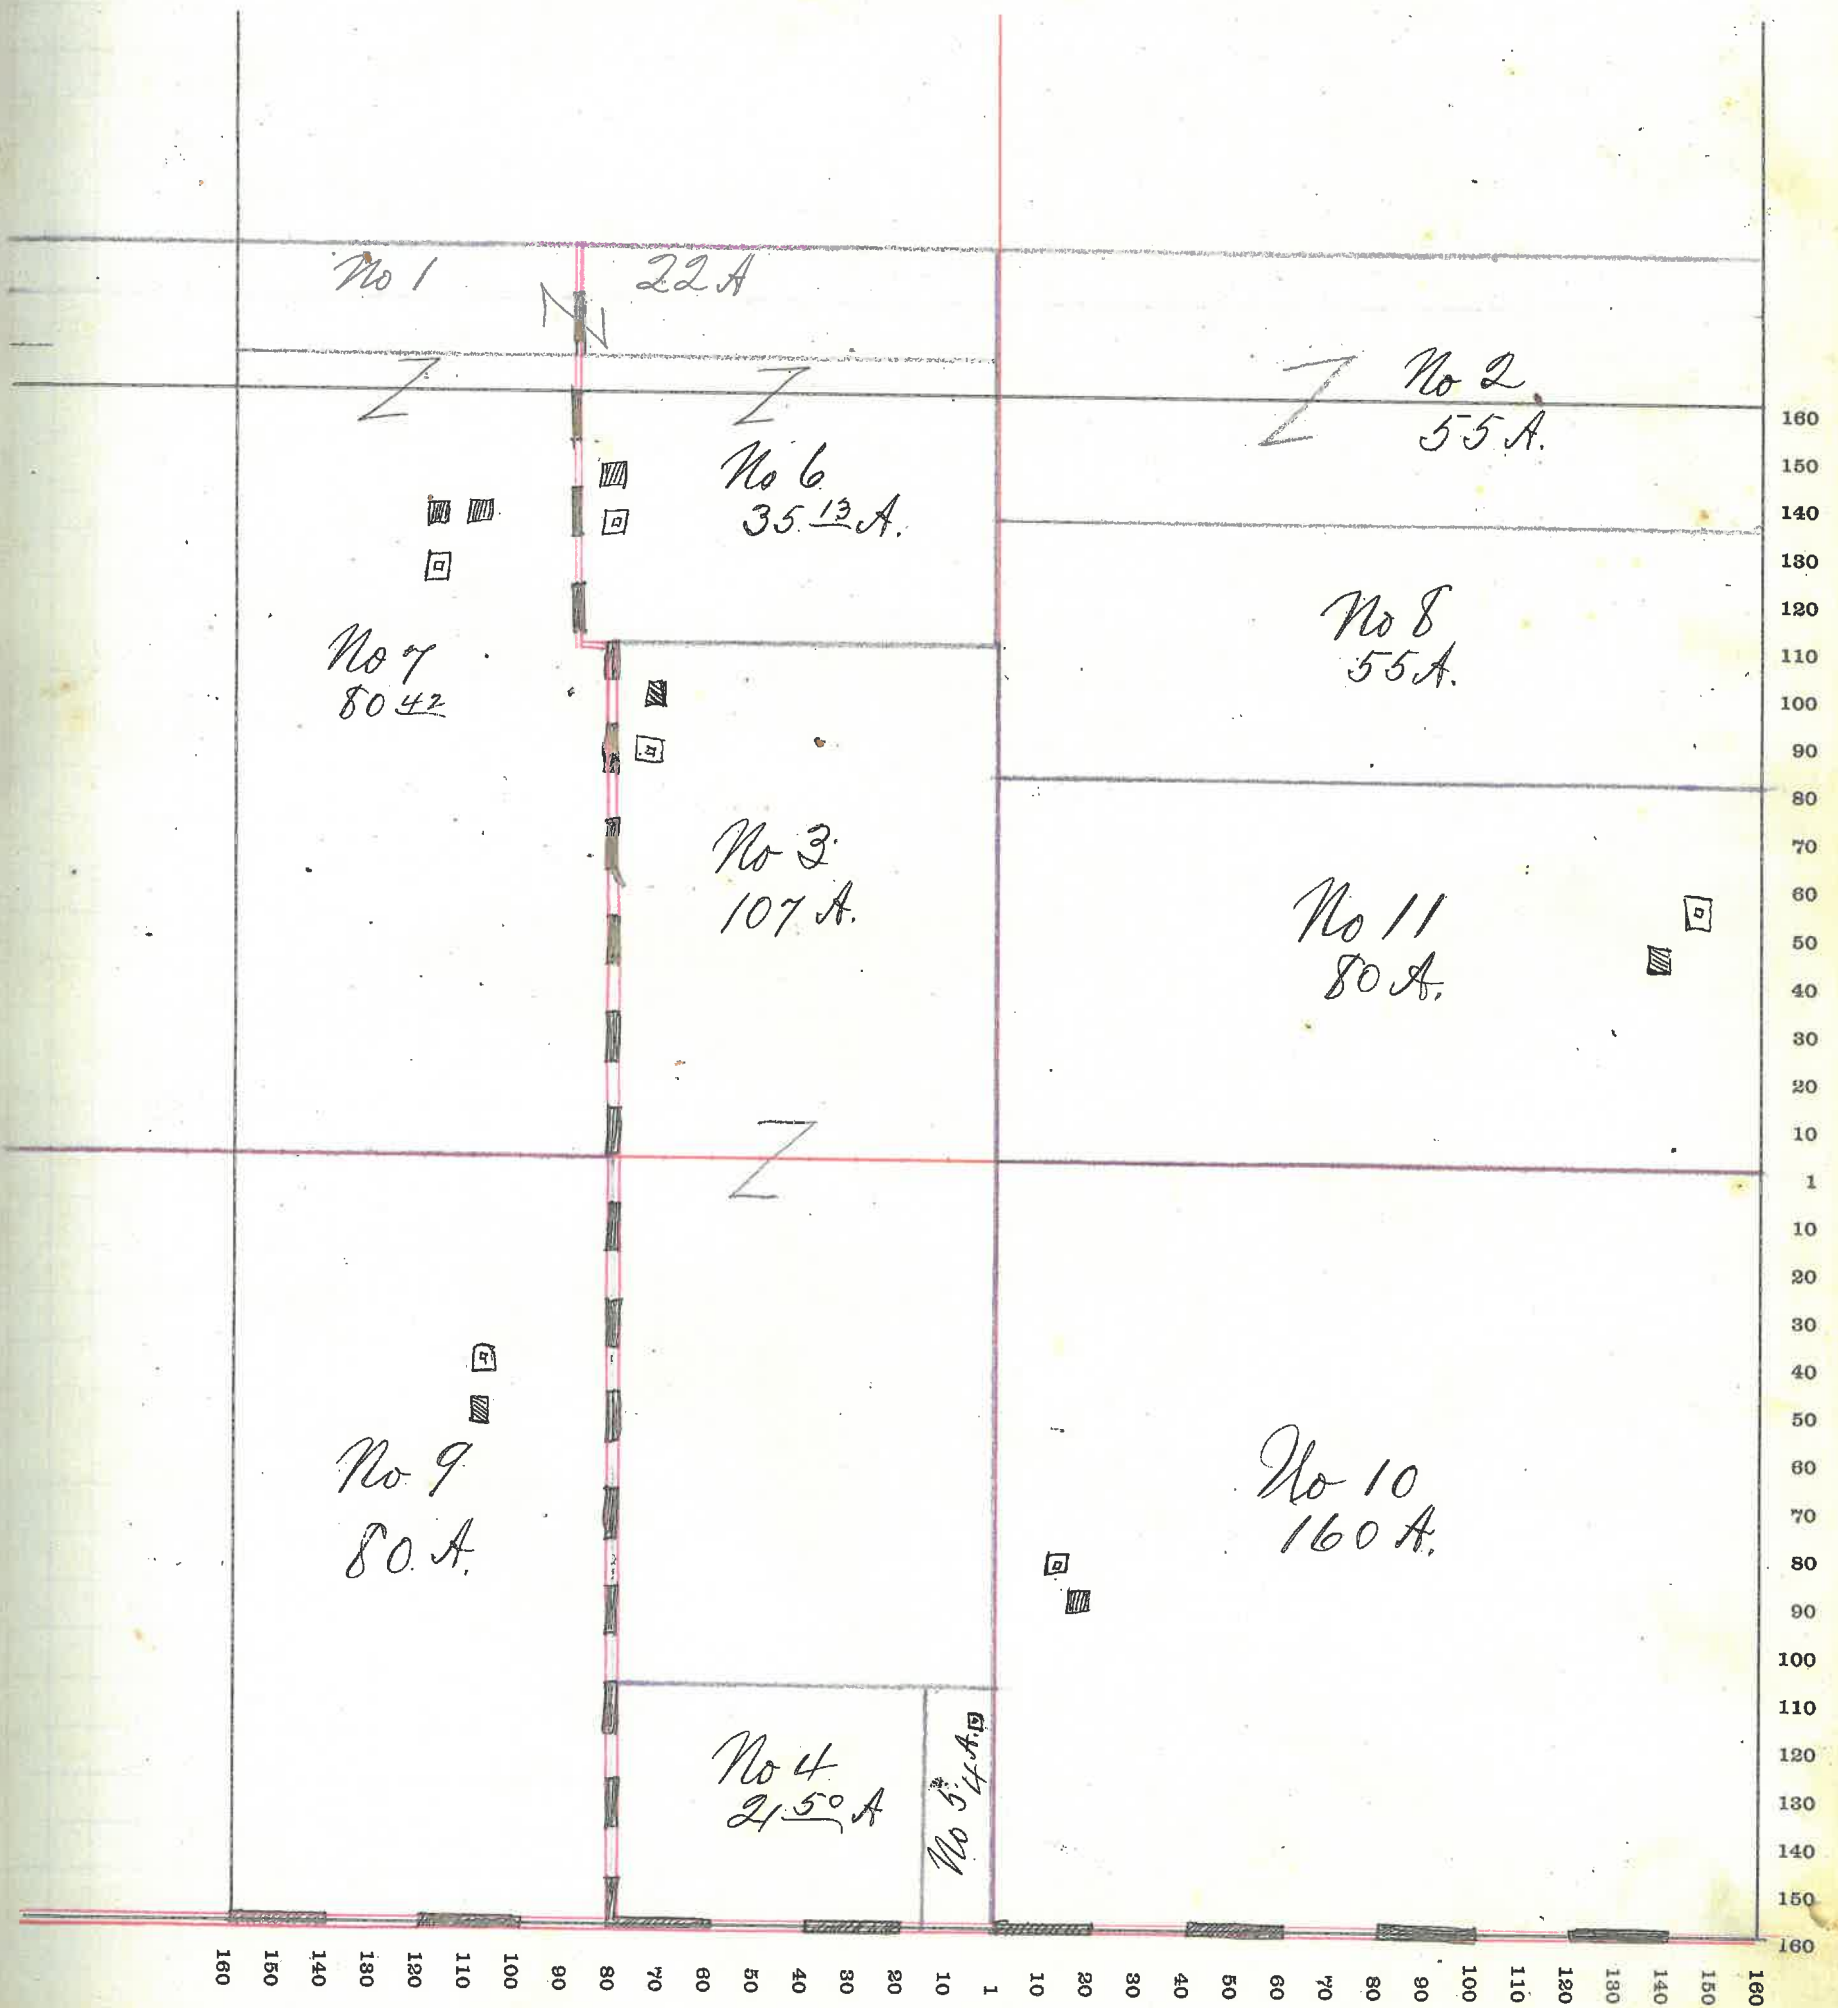 No 1
22 A
No 2
55 A.
No 6
35.13 A.
No 7
80 42
No 8
55 A.
No 3
107 A.
No 11
80 A.
No 9
80. A.
No 10
160 A.
No 4
21.50 A
No 5
4 A.
160
150
140
130
120
110
100
90
80
70
60
50
40
30
20
10
1
10
20
30
40
50
60
70
80
90
100
110
120
130
140
150
160
160 150 140 130 120 110 100 90 80 70 60 50 40 30 20 10 1 10 20 30 40 50 60 70 80 90 100 110 120 130 140 150 160